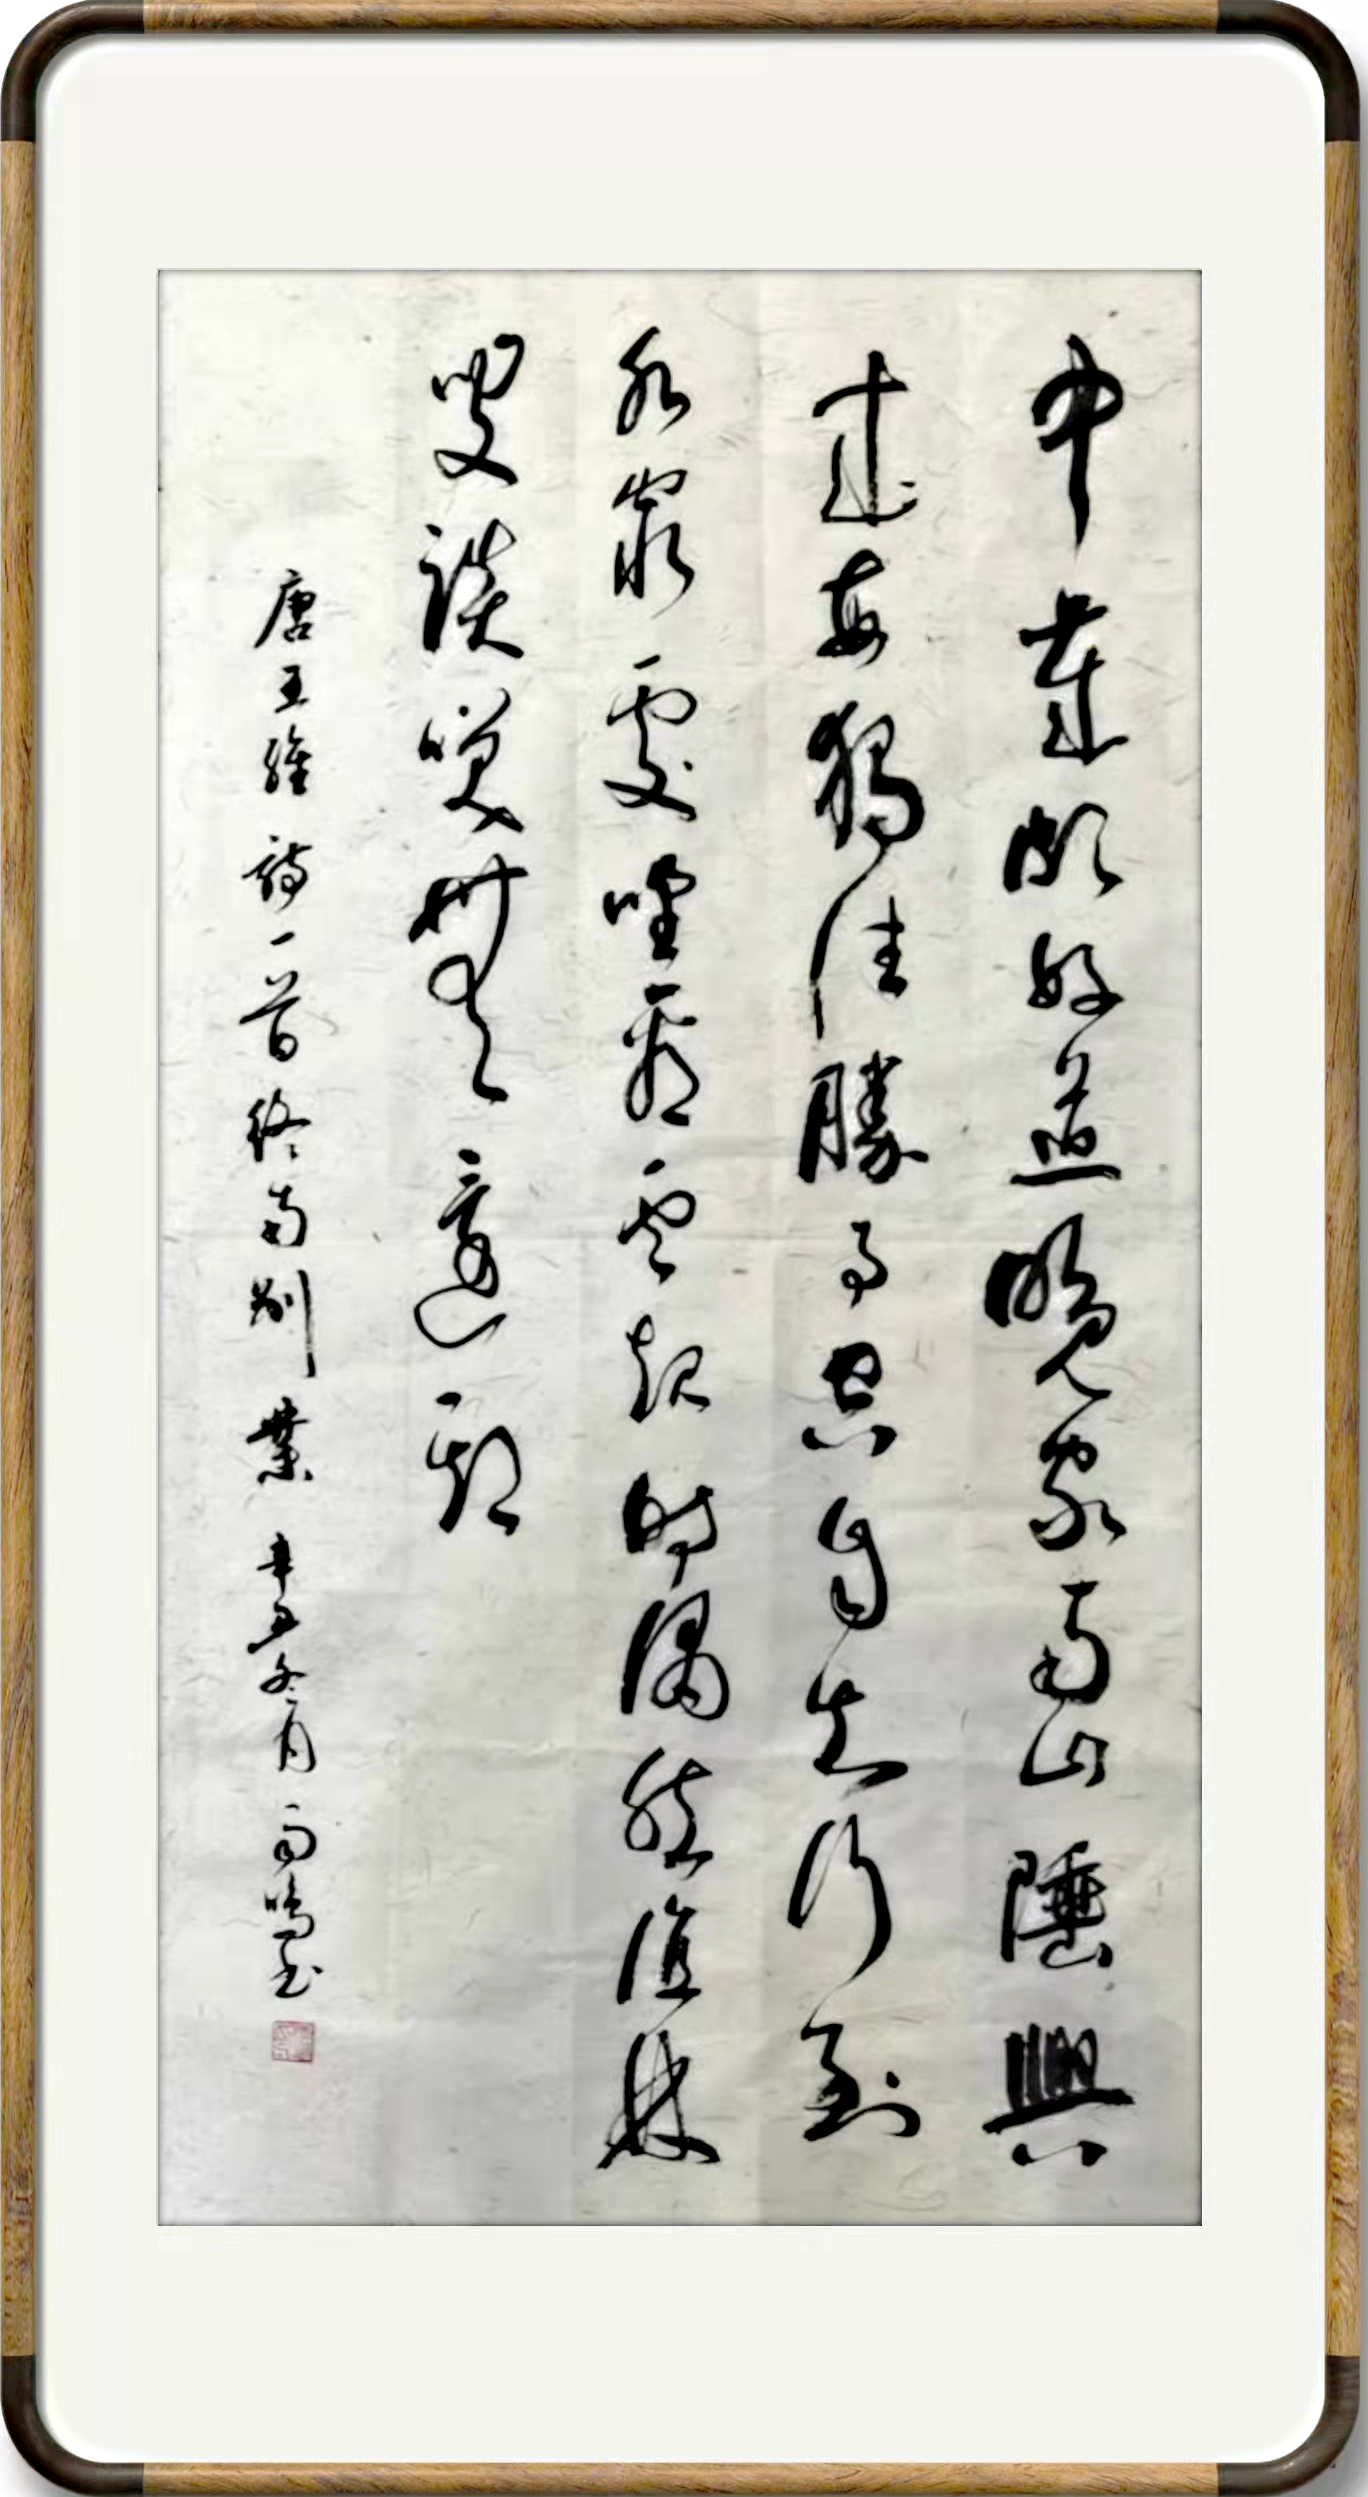 中歲頗好道晚家南山陲興
來每獨往勝事空自知行到
水窮處坐看雲起時偶然值林
叟談笑無還期
唐王維詩一首終南別業 辛丑冬月 雨鳴书